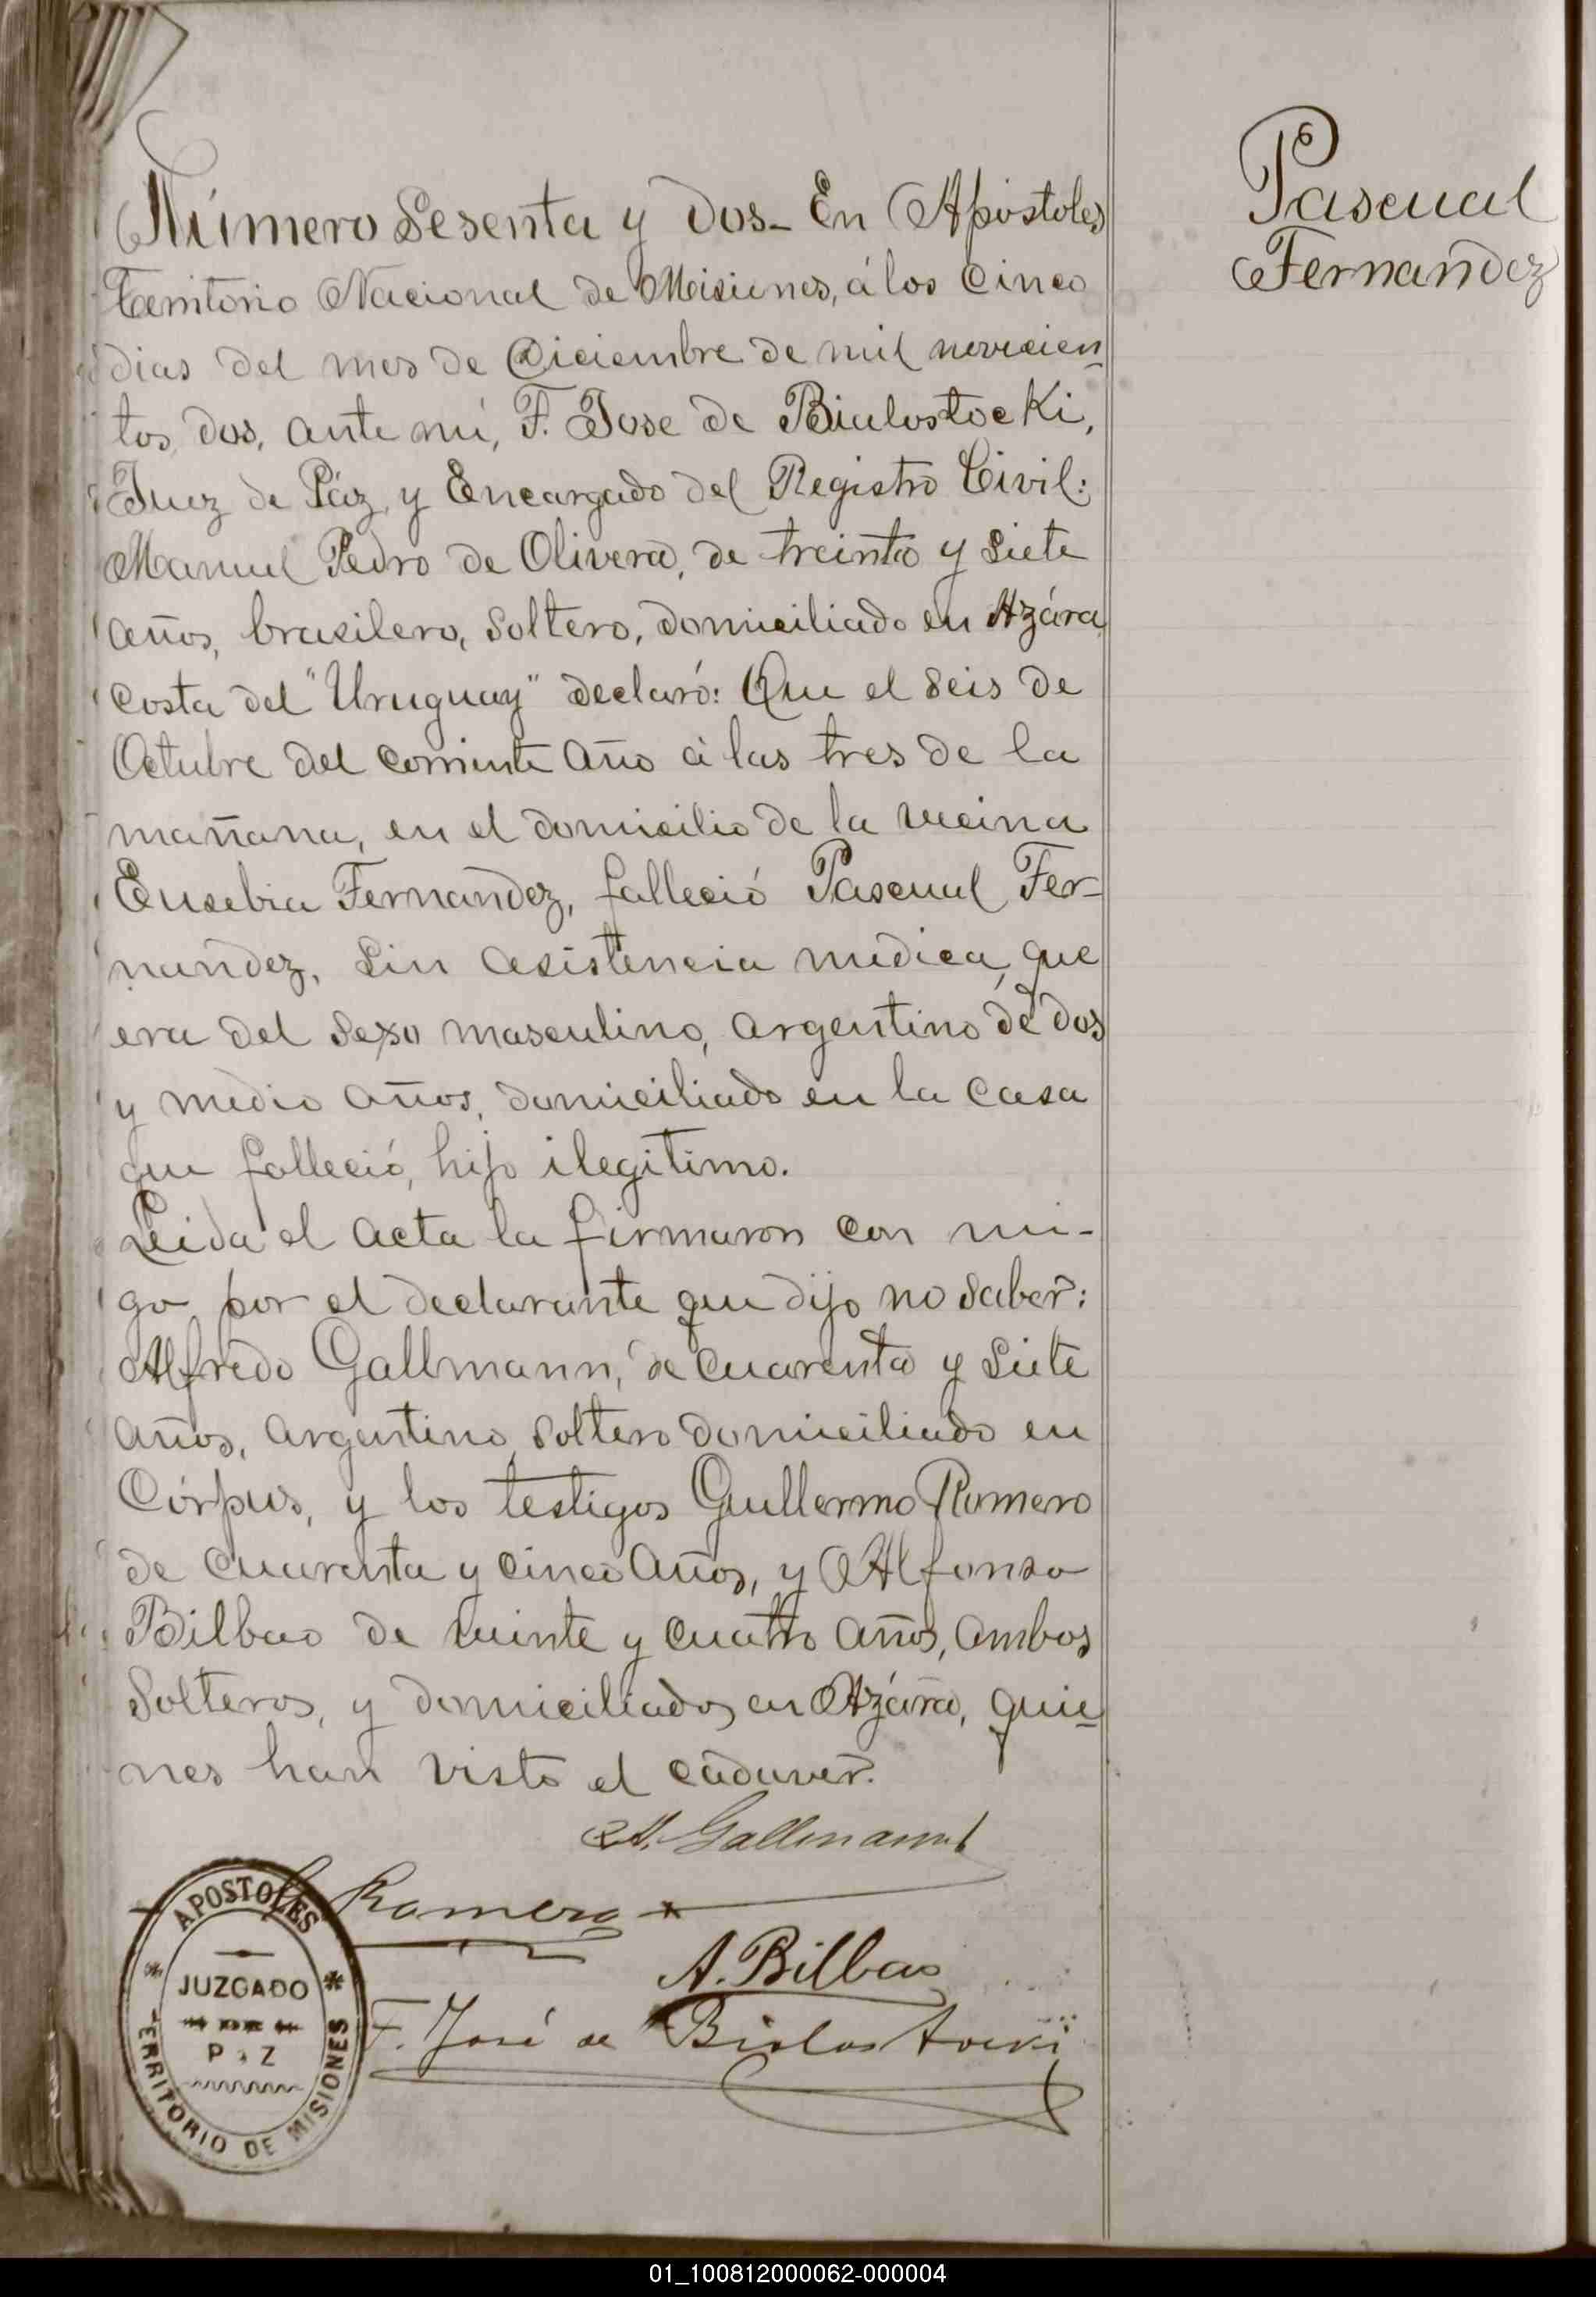 Número Sesenta y dos_ En Apóstoles
Territorio Nacional de Misiones, á los cinco
dias del mes de Diciembre de mil novecien_
tos, dos, ante mi, F. Jose de Bialostocki,
Juez de Páz, y Encargado del Registro Civil:
Manuel Pedro de Olivera, de treinta y siete
años, brasilero, soltero, domiciliado en Azára
costa del "Uruguay" declaró: Que el seis de
Octubre del corriente año á las tres de la
mañana, en el domicilio de la vecina
Eusebia Fernandez, falleció Pascual Fer-
nandez, sin asistencia medica, que
era del sexo masculino, argentino de dos
y medio años, domiciliado en la casa
que falleció, hijo ilegitimo.
Leida el acta la firmaron con mi-
go, por el declarante que dijo no saber:
Alfredo Gallmann, de cuarenta y siete
años, argentino, soltero domiciliado en
Córpus, y los testigos Guillermo Romero
de cuarenta y cinco años, y Alfonso
Bilbao de veinte y cuatro años, ambos
solteros, y domiciliados en Azára, quie_
nes han visto el cadaver.
A. Gallmann
Romero
A. Bilbao
F. José de Bialostocki
Pascual
Fernandez
APOSTOLES
JUZGADO
DE
PAZ
TERRITORIO DE MISIONES
01_100812000062-000004